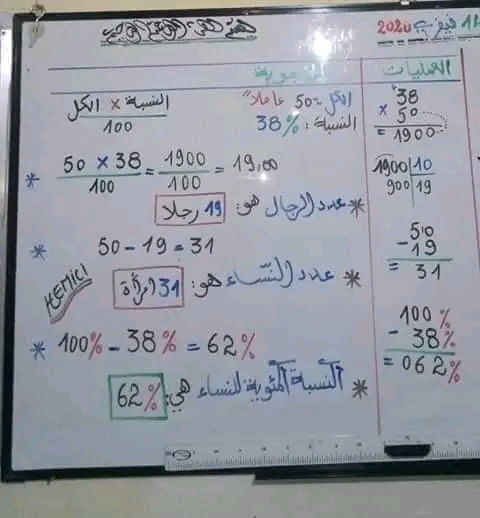 فيفري 2020
العمليات
الكل = 50 عاملا"
النسبة: 38%
النسبة × الكل / 100
* 50 × 38 / 100 = 1900 / 100 = 19,00
* عدد الرجال هو: 19 رجلا
* 50 - 19 = 31
* عدد النّساء هو: 31 امرأة
HEMICI
* 100% - 38% = 62%
* النسبة المئوية للنساء هي: 62%
38
× 50
= 1900
1900 | 10
900 | 19
50
- 19
= 31
100%
- 38%
= 062%